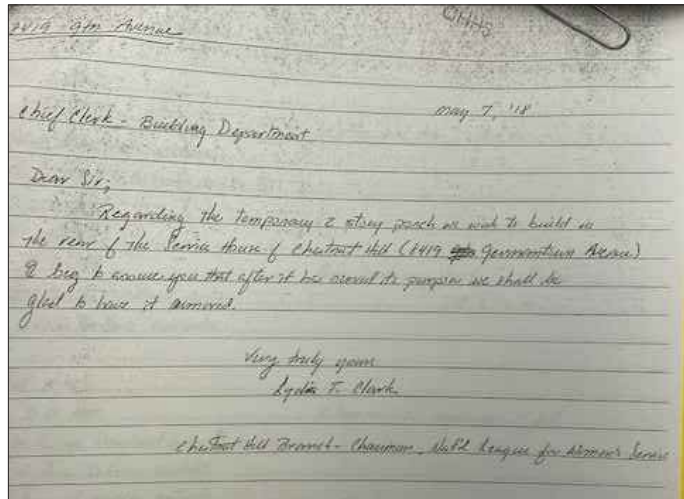 CHHS
8419 Gtn Avenue
May 7, '18
Chief Clerk - Building Department
Dear Sir;
Regarding the temporary 2 story porch we wish to build in
the rear of the Service House of Chestnut Hill (8419 Germantown Avenue)
I beg to assure you that after it has served its purpose we shall be
glad to have it removed.
Very truly yours
Lydia T. Clark
Chestnut Hill Branch - Chairman - Nat'l League for Women's Service